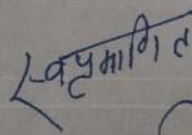 स्वप्रमाणित